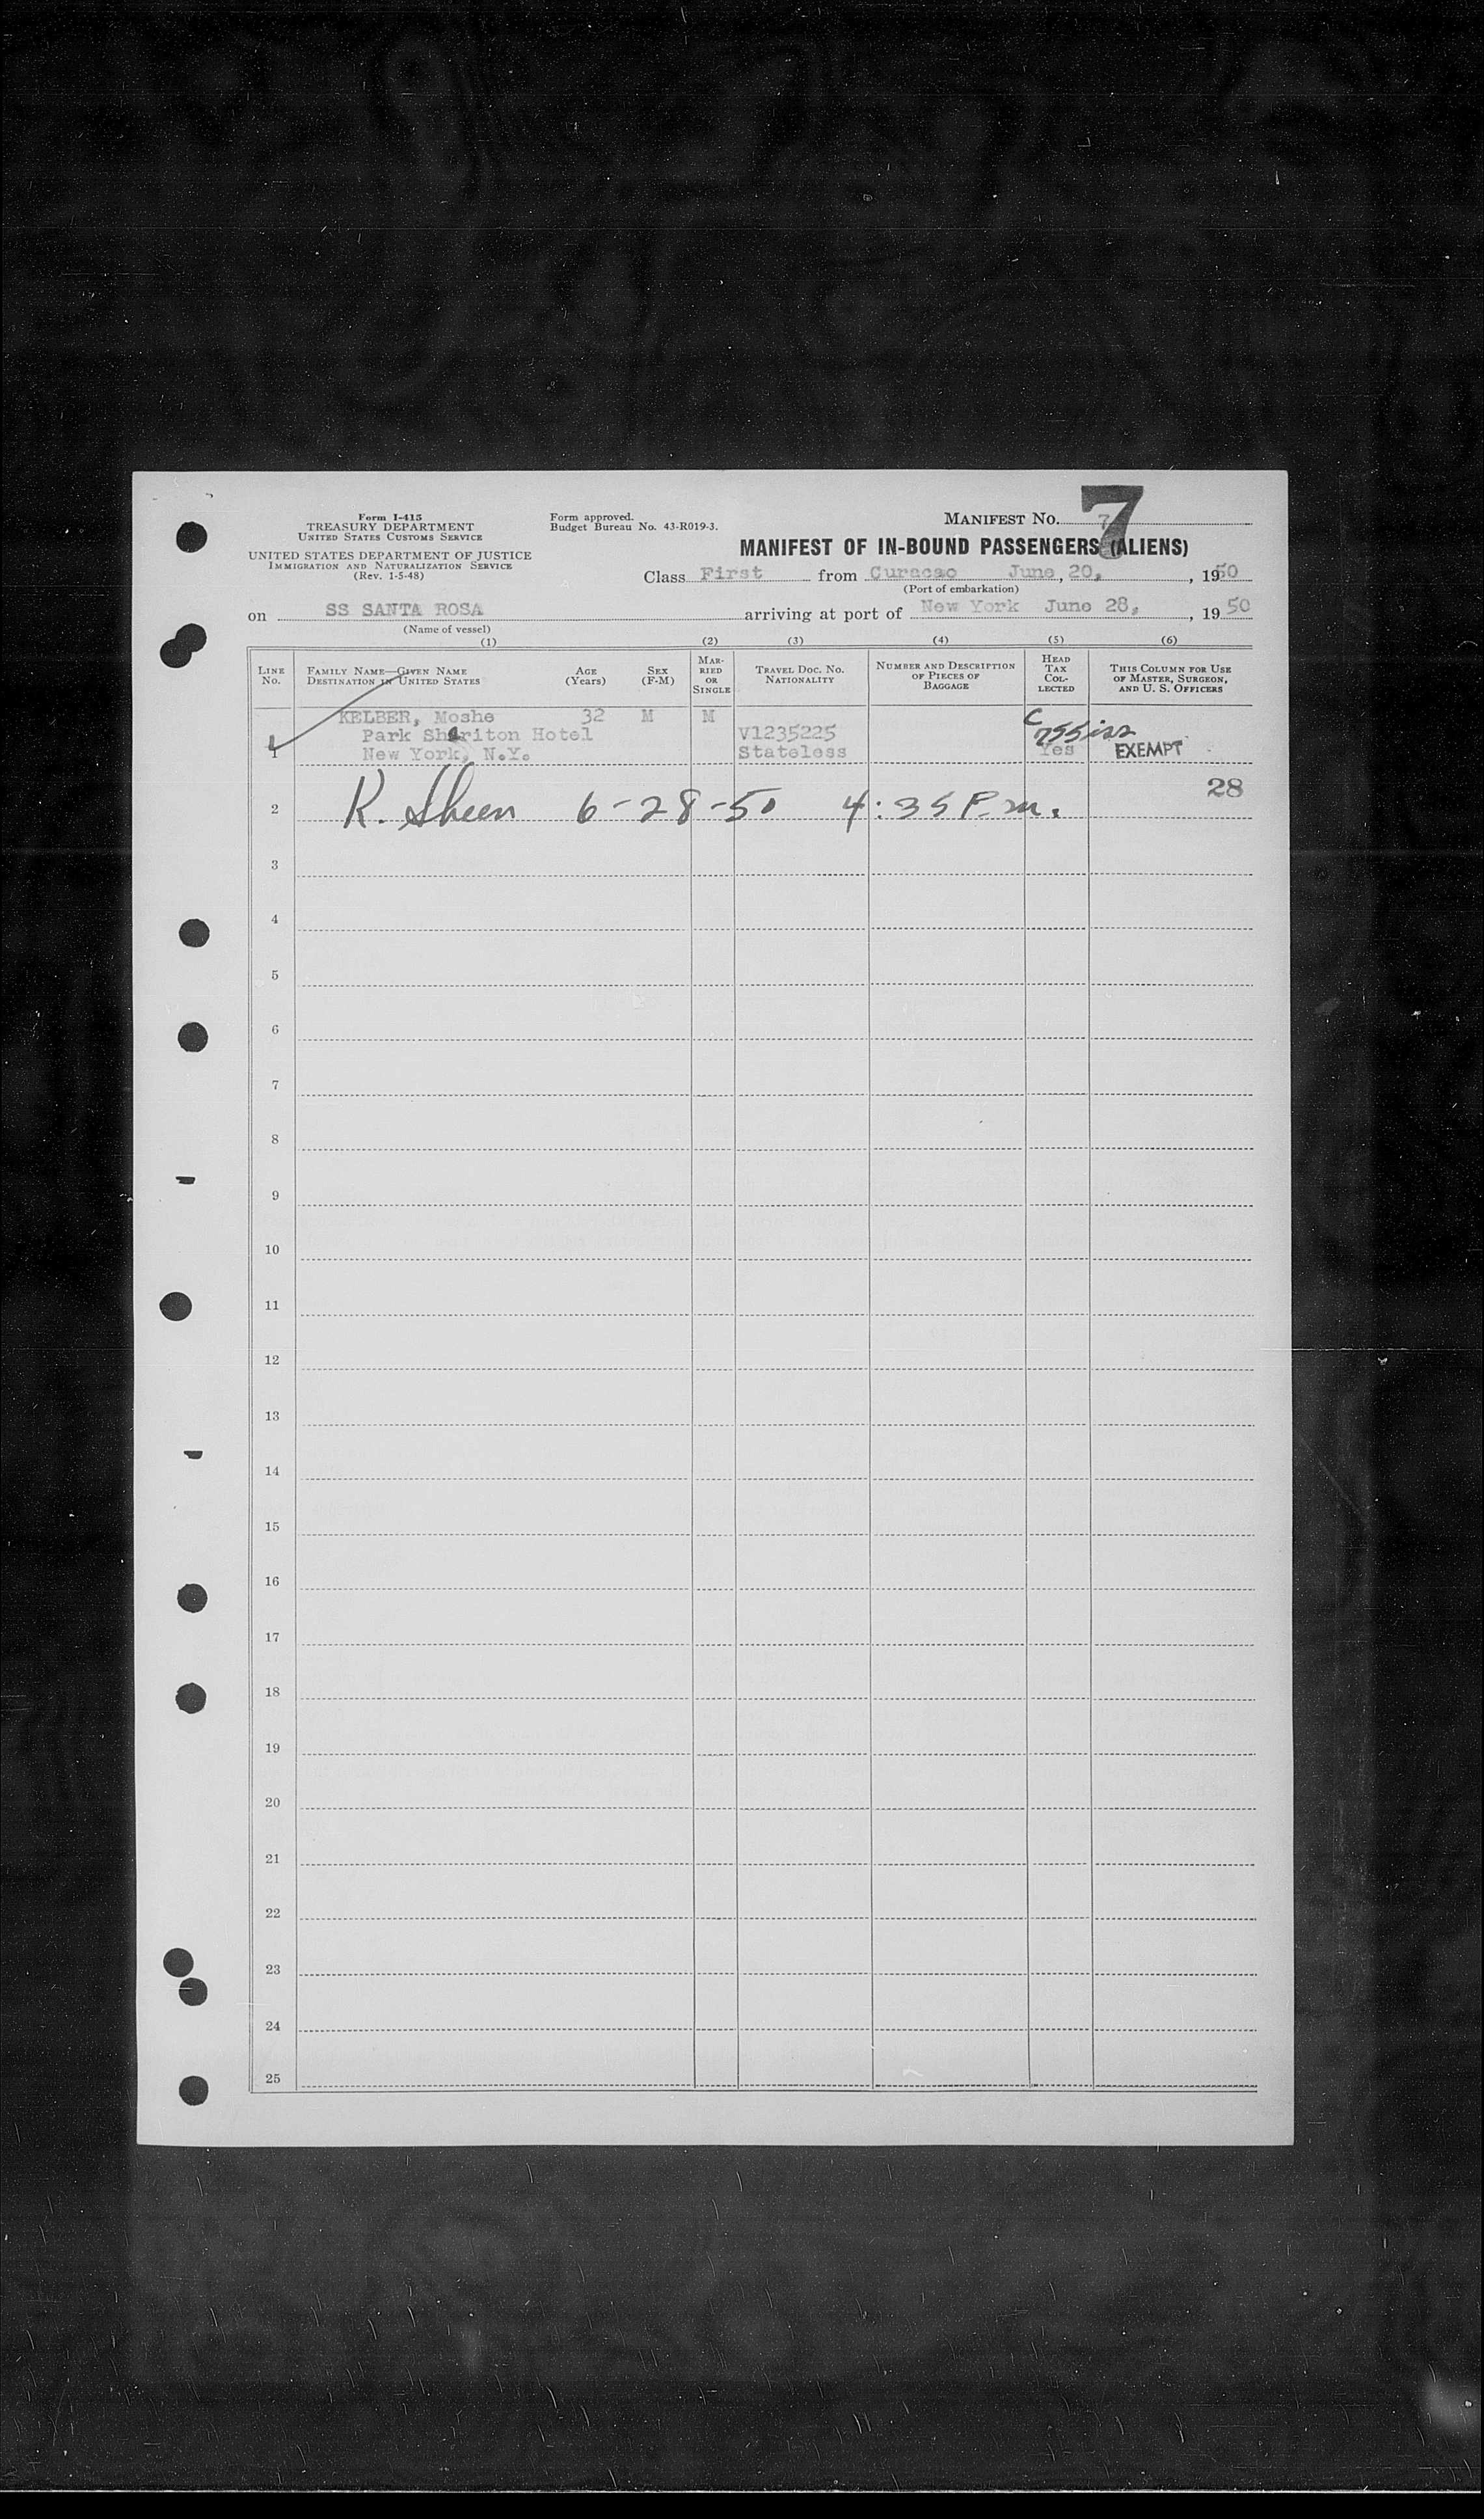 Form I-415
TREASURY DEPARTMENT
UNITED STATES CUSTOMS SERVICE
UNITED STATES DEPARTMENT OF JUSTICE
IMMIGRATION AND NATURALIZATION SERVICE
(Rev. 1-5-48)
Form approved.
Budget Bureau No. 43-R019-3.
MANIFEST No. 7
7
MANIFEST OF IN-BOUND PASSENGERS (ALIENS)
Class First from Curacao June, 20, , 1950
(Port of embarkation)
on SS SANTA ROSA arriving at port of New York June 28, , 19 50
(Name of vessel)
(1) (2) (3) (4) (5) (6)
LINE No.
FAMILY NAME—GIVEN NAME
DESTINATION IN UNITED STATES
AGE (Years)
SEX (F-M)
MARRIED OR SINGLE
TRAVEL DOC. NO.
NATIONALITY
NUMBER AND DESCRIPTION OF PIECES OF BAGGAGE
HEAD TAX COLLECTED
THIS COLUMN FOR USE OF MASTER, SURGEON, AND U. S. OFFICERS
KELBER, Moshe 32 M M
Park Sheriton Hotel V1235225
1 New York, N.Y. Stateless Yes EXEMPT
28
2 K. Sheen 6-28-50 4:35 P.m.
3
4
5
6
7
8
9
10
11
12
13
14
15
16
17
18
19
20
21
22
23
24
25